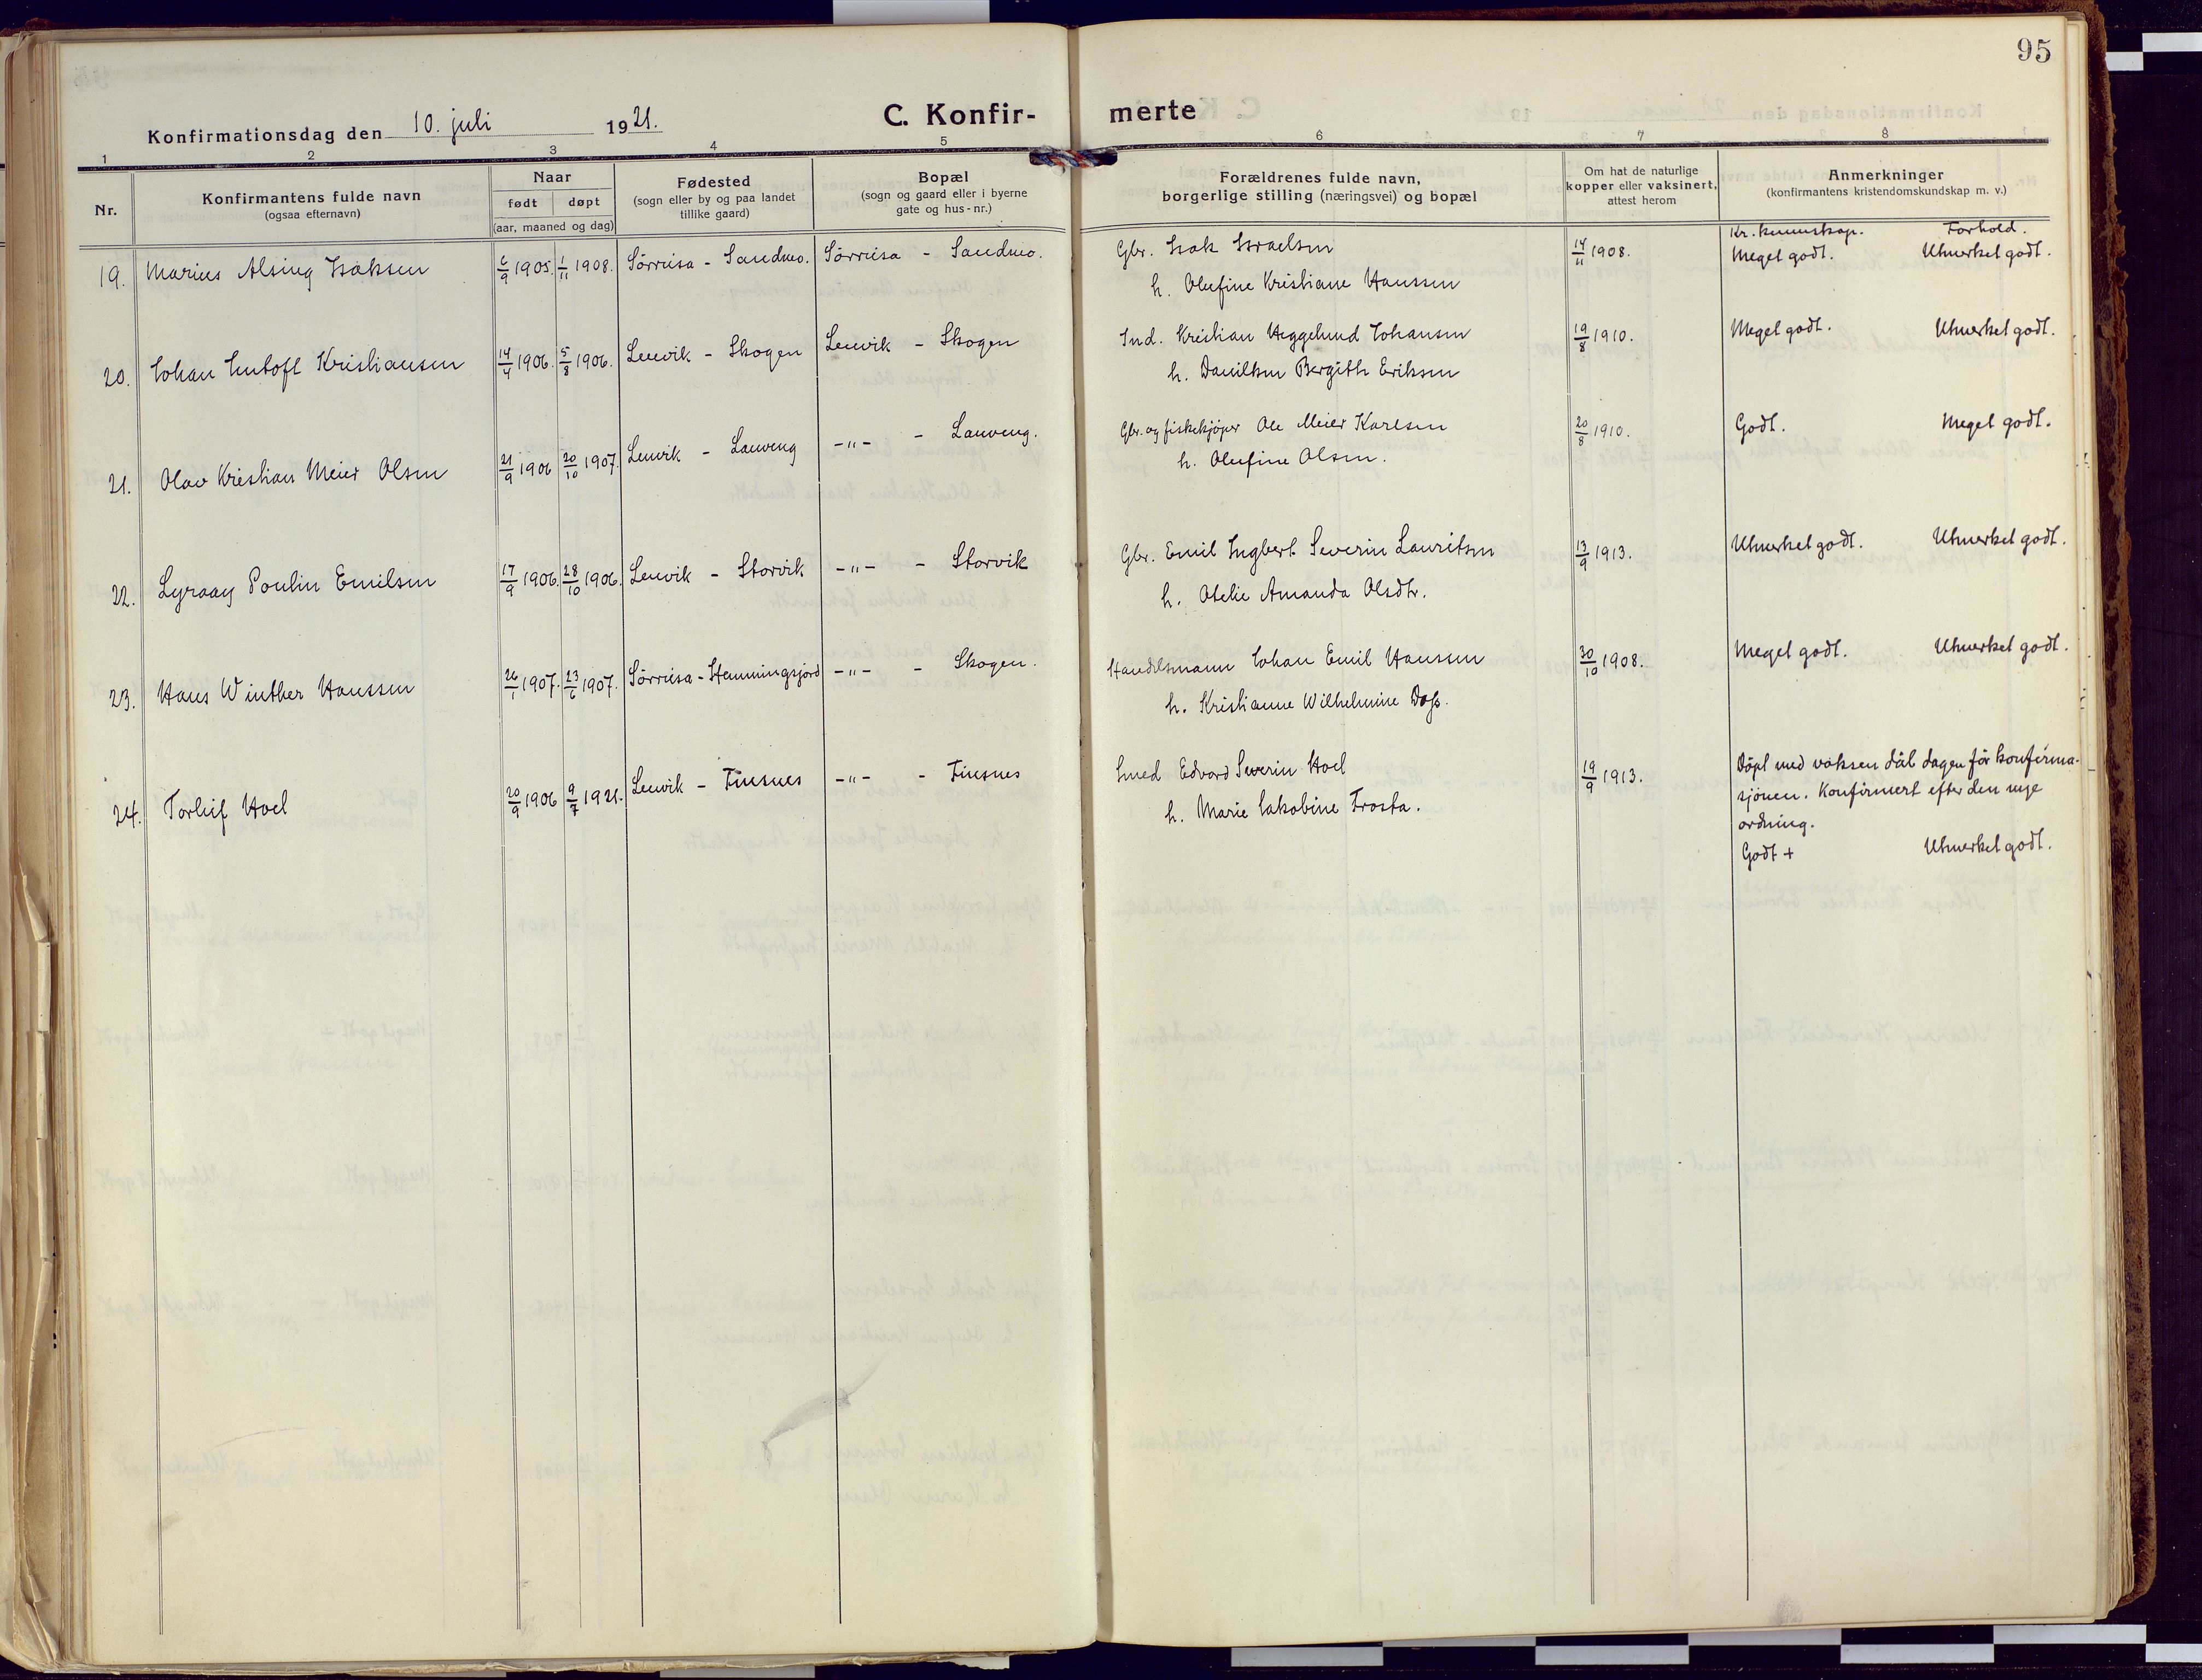 95
Konfirmationsdag den 10. juli 1921.
C. Konfir- merte
1 2 3 4 5 6 7 8
Nr.
Konfirmantens fulde navn
(ogsaa efternavn)
Naar
født døpt
(aar, maaned og dag)
Fødested
(sogn eller by og paa landet
tillike gaard)
Bopæl
(sogn og gaard eller i byerne
gate og hus-nr.)
Forældrenes fulde navn,
borgerlige stilling (næringsvei) og bopæl
Om hat de naturlige
kopper eller vaksinert,
attest herom
Anmerkninger
(konfirmantens kristendomskundskap m. v.)
Kr. kunnskap. Forhold.
19. Marius Alsing Isaksen 6/9 1905. 1/11 1908. Sörreisa - Sandmo. Sörreisa - Sandmo. Gbr. Isak Israelsen 14/11 1908. Meget godt. Utmerket godt.
h. Olufine Kristiane Hanssen
20. Johan Kristiansen 14/4 1906. 5/8 1906. Lenvik - Skogen Lenvik - Skogen Ind. Kristian Heggelund Johansen 19/8 1910. Meget godt. Utmerket godt.
h. Bergith Eriksen
21. Olav Kristian Meier Olsen 21/9 1906 20/10 1907. Lenvik - Lauveng -"- - Lauveng. Gbr. og fiskekjöper Ole Meier Karlsen 20/8 1910. Godt. Meget godt.
h. Olufine Olsen.
22. Poulin Emilsen 17/9 1906. 28/10 1906. Lenvik - Storvik -"- - Storvik Gbr. Emil Ingbert Severin Lauritsen 13/9 1913. Utmerket godt. Utmerket godt.
h. Otelie Amanda Olsdtr.
23. Hans Winther Hanssen 26/1 1907. 23/6 1907. Sörreisa - Skogen. Handelsmann Johan Emil Hanssen 30/10 1908. Meget godt. Utmerket godt.
h. Kristianne Wilhelmine Dass.
24. Torleif Hoel 20/9 1906 9/7 1921. Lenvik - Finsnes -"- - Finsnes Smed Edvard Severin Hoel 19/9 1913. Döpt med voksen dåb dagen för konfirma-
h. Marie Jakobine Trosta. sjonen. Konfirmert efter den nye
ordning.
Godt + Utmerket godt.